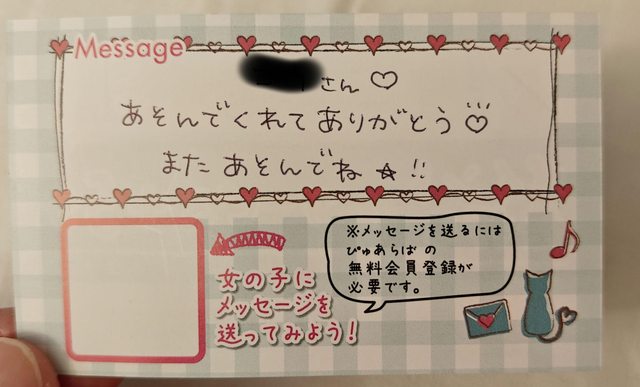 Message
さん♡
あそんでくれてありがとう♡
またあそんでね☆!!
女の子に
メッセージを
送ってみよう!
※メッセージを送るには
ぴゅあらばの
無料会員登録が
必要です。